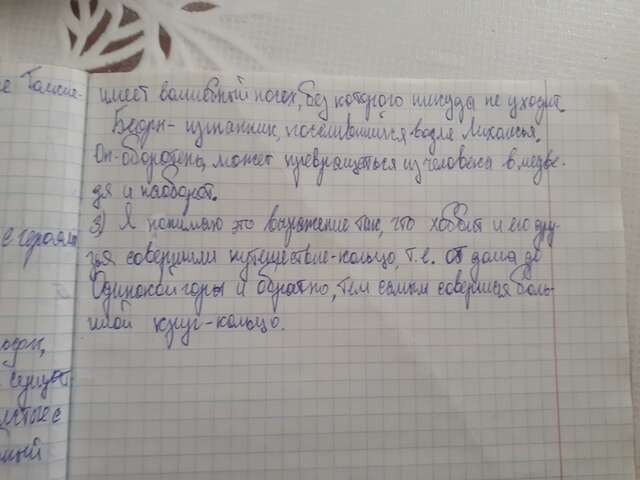 е Толки-
имеет волшебный посох, без которого никуда не уходит.
Беорн - изгнанник, поселившийся возле Лихолесья.
Он-оборотень, может превращаться из человека в медве-
дя и наоборот.
3) Я понимаю это выражение так, что хоббит и его дру-
с героями
зья совершили путешествие-кольцо, т.е. от дома до
Одинокой горы и обратно, тем самым совершая боль-
шой круг-кольцо.